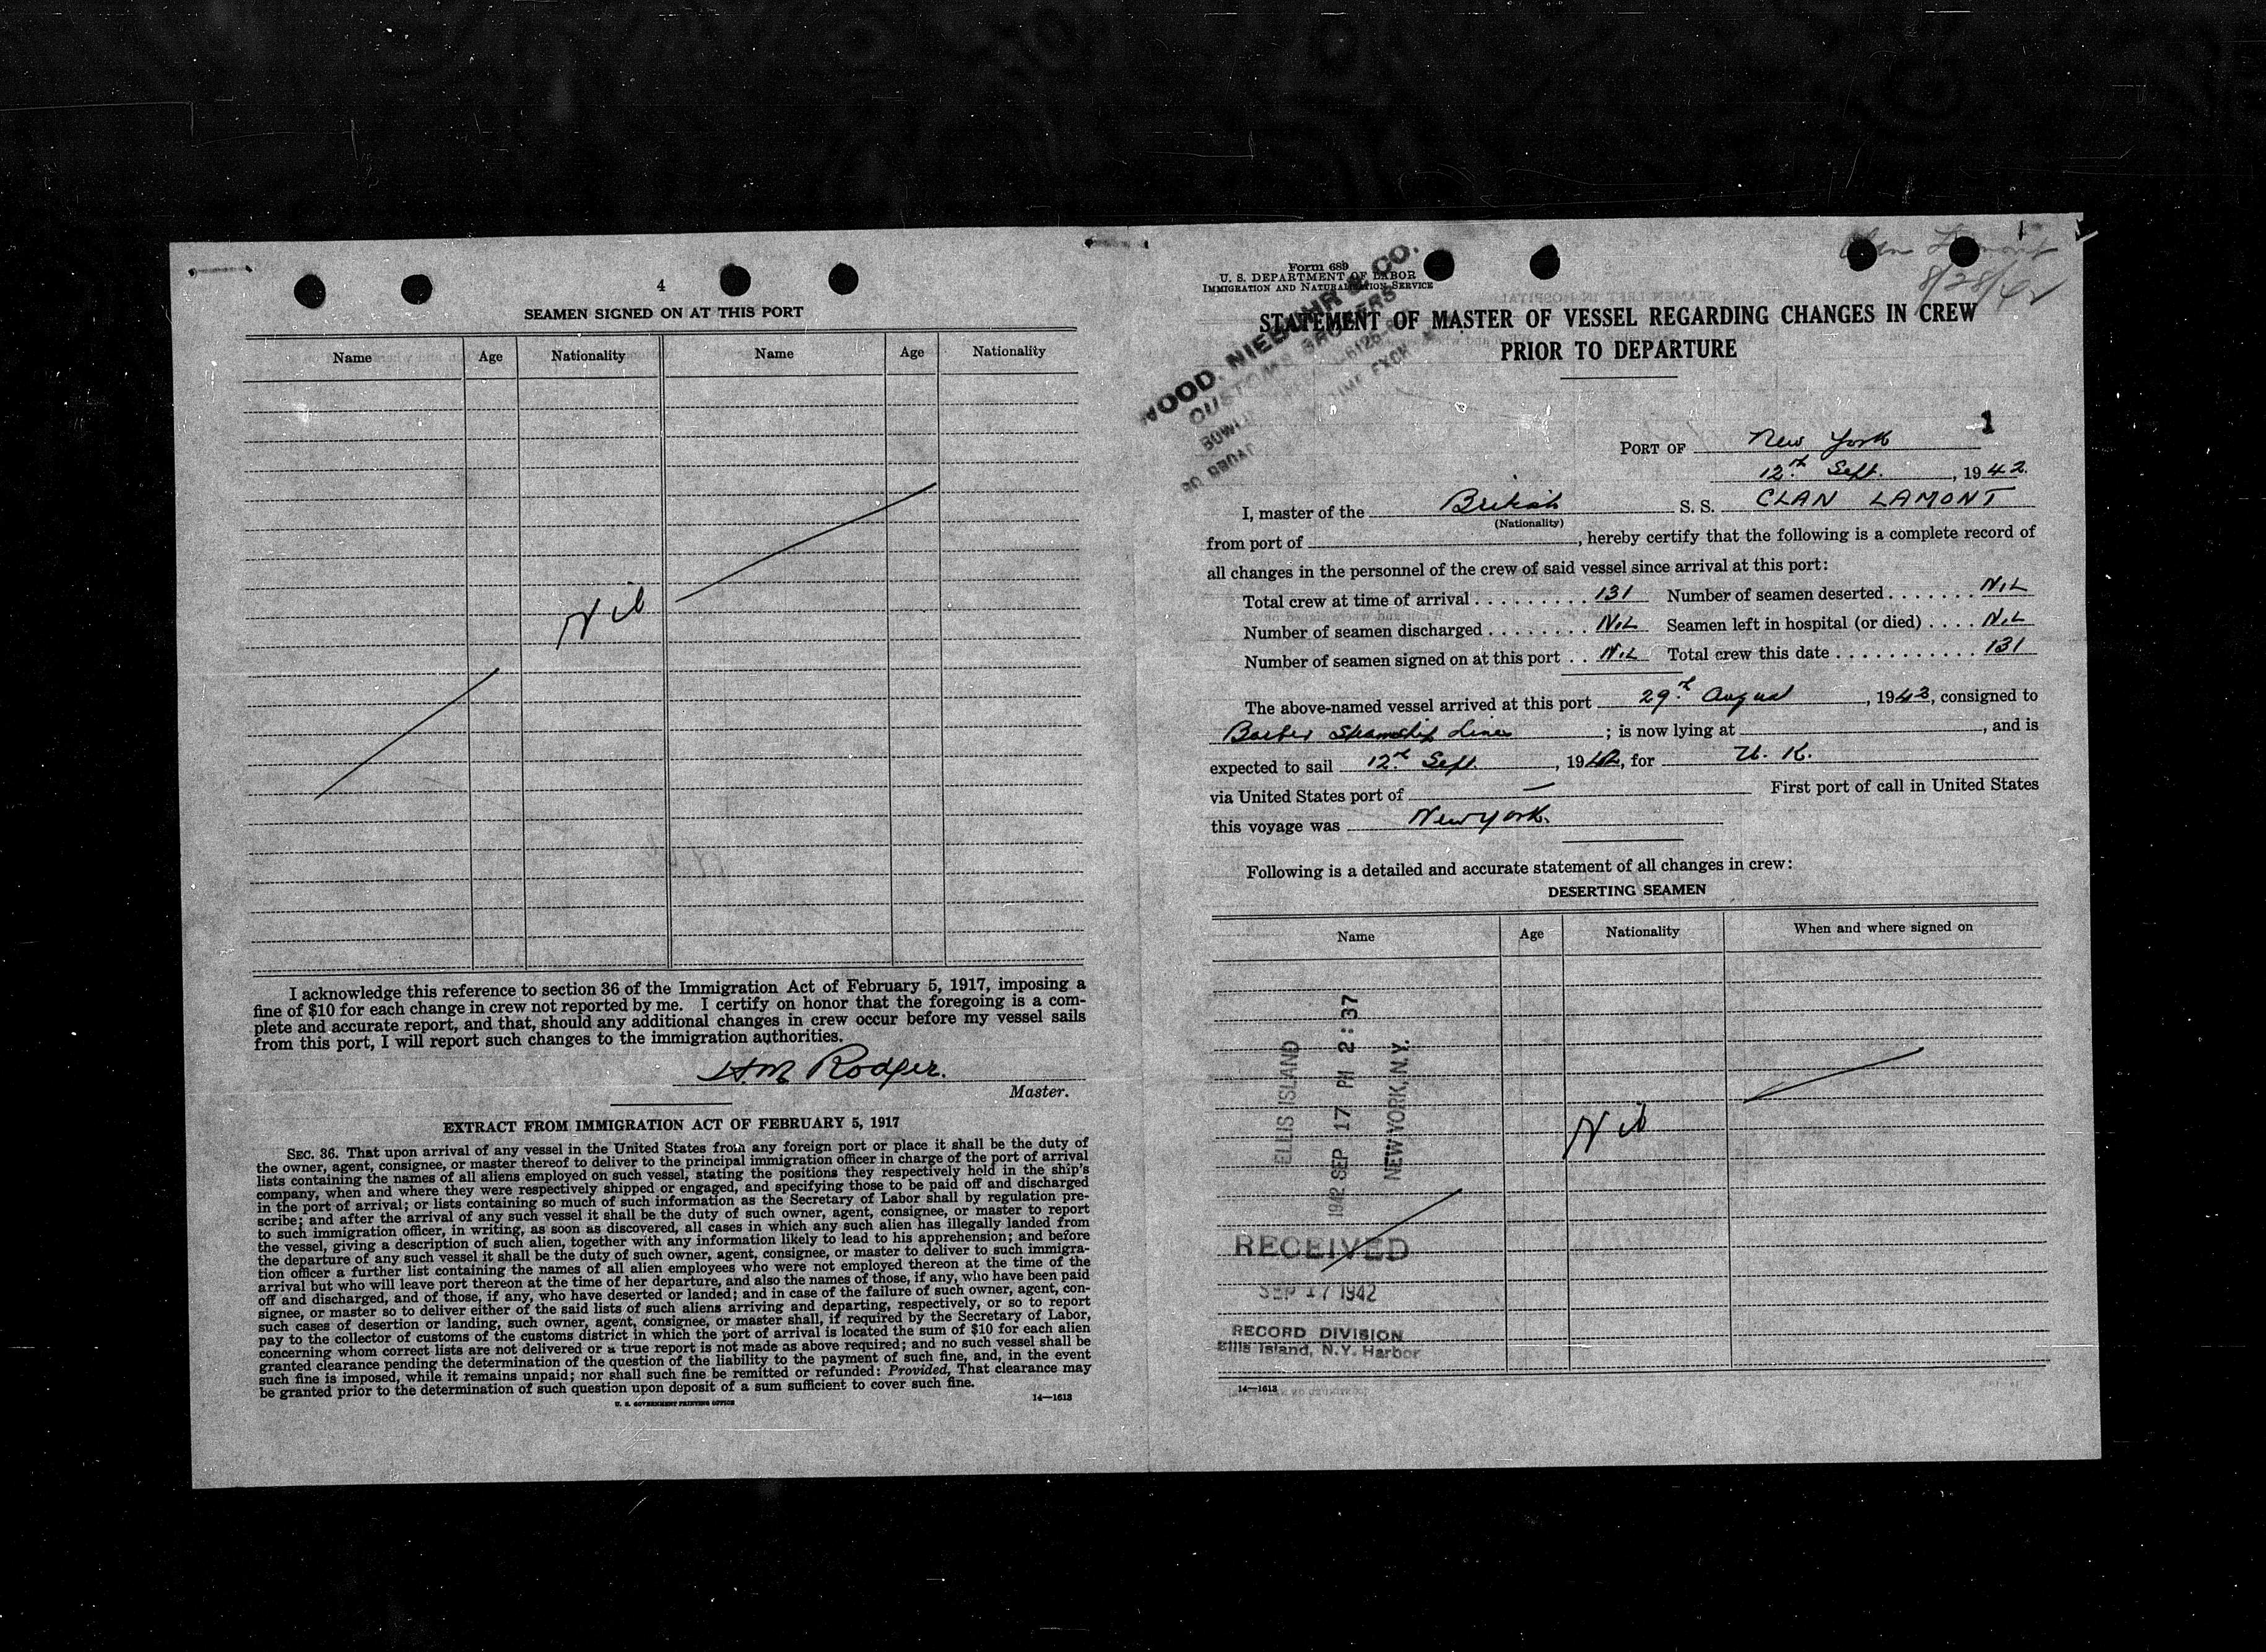 4
SEAMEN SIGNED ON AT THIS PORT
Name Age Nationality Name Age Nationality
Nil
I acknowledge this reference to section 36 of the Immigration Act of February 5, 1917, imposing a
fine of $10 for each change in crew not reported by me. I certify on honor that the foregoing is a com-
plete and accurate report, and that, should any additional changes in crew occur before my vessel sails
from this port, I will report such changes to the immigration authorities.
H.M. Rodger.
Master.
EXTRACT FROM IMMIGRATION ACT OF FEBRUARY 5, 1917
SEC. 36. That upon arrival of any vessel in the United States from any foreign port or place it shall be the duty of
the owner, agent, consignee, or master thereof to deliver to the principal immigration officer in charge of the port of arrival
lists containing the names of all aliens employed on such vessel, stating the positions they respectively hold in the ship's
company, when and where they were respectively shipped or engaged, and specifying those to be paid off and discharged
in the port of arrival; or lists containing so much of such information as the Secretary of Labor shall by regulation pre-
scribe; and after the arrival of any such vessel it shall be the duty of such owner, agent, consignee, or master to report
to such immigration officer, in writing, as soon as discovered, all cases in which any such alien has illegally landed from
the vessel, giving a description of such alien, together with any information likely to lead to his apprehension; and before
the departure of any such vessel it shall be the duty of such owner, agent, consignee, or master to deliver to such immigra-
tion officer a further list containing the names of all alien employees who were not employed thereon at the time of the
arrival but who will leave port thereon at the time of her departure, and also the names of those, if any, who have been paid
off and discharged, and of those, if any, who have deserted or landed; and in case of the failure of such owner, agent, con-
signee, or master so to deliver either of the said lists of such aliens arriving and departing, respectively, or so to report
such cases of desertion or landing, such owner, agent, consignee, or master shall, if required by the Secretary of Labor,
pay to the collector of customs of the customs district in which the port of arrival is located the sum of $10 for each alien
concerning whom correct lists are not delivered or a true report is not made as above required; and no such vessel shall be
granted clearance pending the determination of the question of the liability to the payment of such fine, and, in the event
such fine is imposed, while it remains unpaid; nor shall such fine be remitted or refunded: Provided, That clearance may
be granted prior to the determination of such question upon deposit of a sum sufficient to cover such fine.
U. S. GOVERNMENT PRINTING OFFICE 14—1613
Clan Lamont
8/28/42
Form 689
U. S. DEPARTMENT OF LABOR
IMMIGRATION AND NATURALIZATION SERVICE
NIEBUHR & CO.
CUSTOMS BROKERS
STATEMENT OF MASTER OF VESSEL REGARDING CHANGES IN CREW
PRIOR TO DEPARTURE
1
PORT OF New York
12th Sept. , 1942
I, master of the British S. S. CLAN LAMONT
(Nationality)
from port of , hereby certify that the following is a complete record of
all changes in the personnel of the crew of said vessel since arrival at this port:
Total crew at time of arrival 131 Number of seamen deserted NIL
Number of seamen discharged NIL Seamen left in hospital (or died) NIL
Number of seamen signed on at this port NIL Total crew this date 131
The above-named vessel arrived at this port 29th August , 1942, consigned to
Barber Steamship Lines ; is now lying at , and is
expected to sail 12th Sept. , 1942, for U. K.
via United States port of — First port of call in United States
this voyage was New York.
Following is a detailed and accurate statement of all changes in crew:
DESERTING SEAMEN
Name Age Nationality When and where signed on
Nil
ELLIS ISLAND
1942 SEP 17 PM 2:37
NEW YORK, N.Y.
RECEIVED
SEP 17 1942
RECORD DIVISION
Ellis Island, N.Y. Harbor
14—1613